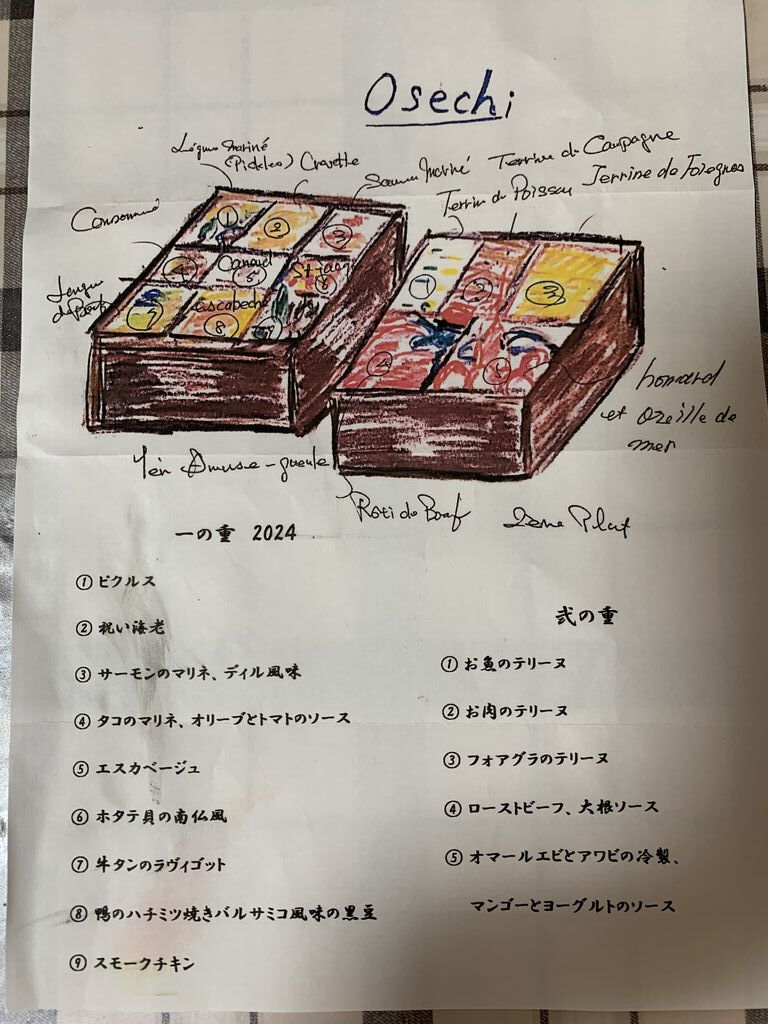 Osechi
Légume mariné
(Pickles) Crevette
Saumon Mariné
Terrine de Campagne
Terrine de Poisson
Terrine de Foiegras
Consommé
①
②
③
④
Canard
⑤
⑥
Langue
de Boeuf
⑦
escabeche
⑧
⑨
①
②
③
④
⑤
homard
et Oreille de
mer
1er Amuse-gueule
Roti de Boeuf
2eme Plat
一の重 2024
① ピクルス
② 祝い海老
③ サーモンのマリネ、ディル風味
④ タコのマリネ、オリーブとトマトのソース
⑤ エスカベージュ
⑥ ホタテ貝の南仏風
⑦ 牛タンのラヴィゴット
⑧ 鴨のハチミツ焼きバルサミコ風味の黒豆
⑨ スモークチキン
弐の重
① お魚のテリーヌ
② お肉のテリーヌ
③ フォアグラのテリーヌ
④ ローストビーフ、大根ソース
⑤ オマールエビとアワビの冷製、
マンゴーとヨーグルトのソース